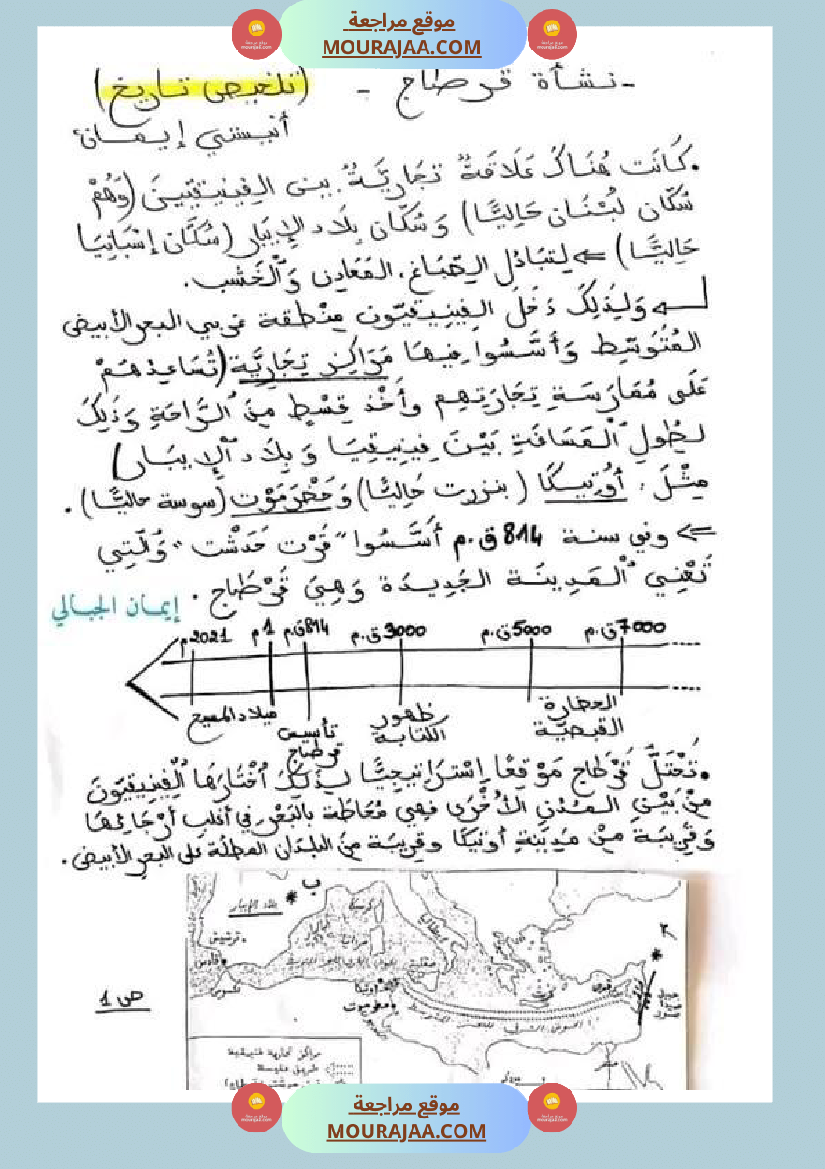 موقع مراجعة
MOURAJAA.COM
- نشأة قرطاج - (تلخيص تاريخ)
أنيستي إيمان
.كَانَت هُنَاكُ عَلَاقَةٌ تِجَارِيَّةٌ بين الفِينِيقِيِّينَ (وَهُمْ
سُكَّان لُبْنَان حَالِيًّا) وَسُكَّان بِلَاد الإِيبَار (سُكَّان إِسْبَانِيَا
حَالِيًّا) ⇐ لِتَبَادُل الصِّبَاغ، المَعَادِن وَالْخَشب.
وَلِذَلِكَ دَخَلَ الفِينِيقيّون مِنْطقة غربي البحر الأبيض
المُتَوَسِّط وَأَسَّسُوا فِيهَا مَرَاكِز تِجَارِيَّة (تُسَاعِدُهُمْ
عَلَى مُمَارَسَةِ تِجَارَتِهِم وأَخْذ قِسْطٍ مِنَ الرَّاحَةِ وَذَلِكَ
لِطُولِ الْمَسَافَةِ بَيْنَ فِينِيقِيَا وَ بِلَاد الإِيبَار)
مِثْلَ: أُوتِيكَا (بنزرت حَالِيًّا) وَحَضْرَمَوْت (سوسة حاليًّا).
⇐ وفي سنة 814 ق.م أَسَّسُوا "قَرْت حَدَشْت" وَالَّتِي
تَعْنِي الْمَدِينَة الجَدِيدَة وَهِيَ قَرْطَاج.
إيمان الجبالي
7000 ق.م 5000 ق.م 3000 ق.م 814 ق.م 1 م 2021 م
الحضارة القبصيّة
ظهور الكتابة
تأسيس قرطاج
ميلاد المسيح
.تَحْتَلُّ قَرْطَاج مَوْقِعًا إِسْتْرَاتِيجِيًّا لِذَلِكَ اُخْتَارَهَا الْفِينِيقِيّون
مِنْ بَيْنِ المُدُنِ الأُخْرَى فهي مُحَاطَة بالبَحْرِ في أغلبِ أرْجَائِهَا
وَقَرِيبَة مِنْ مَدِينَةِ أوتيكَا وقريبَة منَ البلدَان المطلّة على البحر الأبيض.
ب
بلاد الإيبار
كرسيكا
ترشيش
قادس
صقلية
أوتيكا
حضرموت
مصر
ص 1
مراكز تجارية فينيقية
موقع مراجعة
MOURAJAA.COM